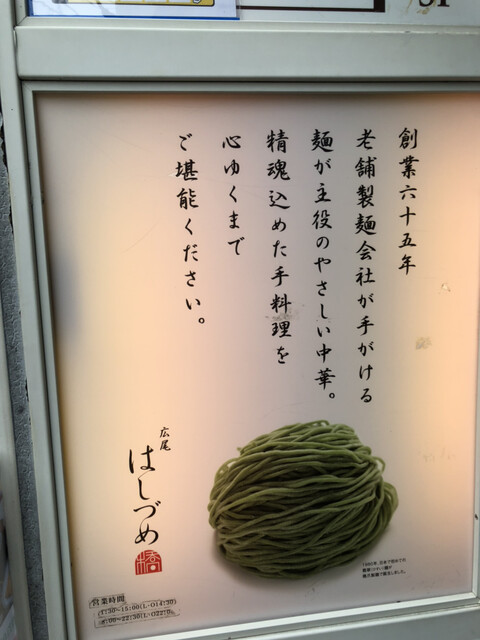 創業六十五年
老舗製麺会社が手がける
麺が主役のやさしい中華。
精魂込めた手料理を
心ゆくまで
ご堪能ください。
広尾
はしづめ
営業時間